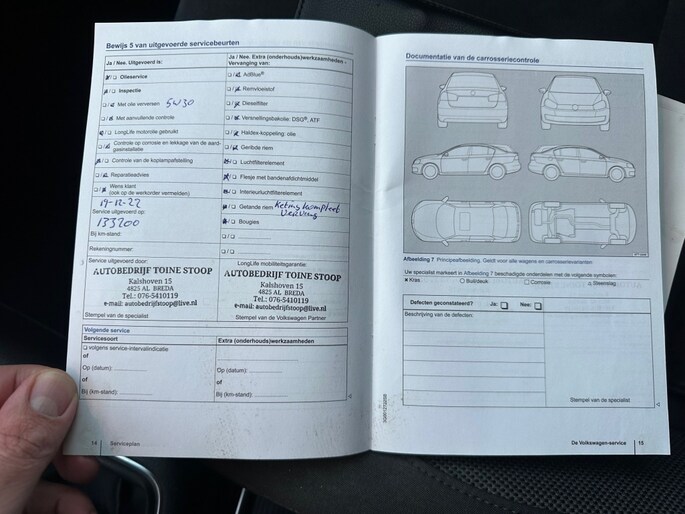 Bewijs 5 van uitgevoerde servicebeurten
Ja / Nee. Uitgevoerd is:
Olieservice
Inspectie
Met olie verversen 5W30
Met aanvullende controle
LongLife motorolie gebruikt
Controle op corrosie en lekkage van de aard-
gasinstallatie
Controle van de koplampafstelling
Reparatieadvies
Wens klant
(ook op de werkorder vermelden)
19-12-22
Service uitgevoerd op:
133200
Bij km-stand:
Rekeningnummer:
Service uitgevoerd door:
AUTOBEDRIJF TOINE STOOP
Kalshoven 15
4825 AL BREDA
Tel.: 076-5410119
e-mail: autobedrijfstoop@live.nl
Stempel van de specialist
Ja / Nee. Extra (onderhouds)werkzaamheden -
Vervanging van:
AdBlue®
Remvloeistof
Dieselfilter
Versnellingsbakolie: DSG®, ATF
Haldex-koppeling: olie
Geribde riem
Luchtfilterelement
Flesje met bandenafdichtmiddel
Interieurluchtfilterelement
Getande riem
Bougies
LongLife mobiliteitsgarantie:
AUTOBEDRIJF TOINE STOOP
Kalshoven 15
4825 AL BREDA
Tel.: 076-5410119
e-mail: autobedrijfstoop@live.nl
Stempel van de Volkswagen Partner
Volgende service
Servicesoort
volgens service-intervalindicatie
of
Op (datum):
of
Bij (km-stand):
Extra (onderhouds)werkzaamheden
Op (datum):
of
Bij (km-stand):
14 Serviceplan
Documentatie van de carrosseriecontrole
Afbeelding 7 Principeafbeelding. Geldt voor alle wagens en carrosserievarianten
Uw specialist markeert in Afbeelding 7 beschadigde onderdelen met de volgende symbolen:
Kras
Buil/deuk
Corrosie
Steenslag
Defecten geconstateerd? Ja: Nee:
Beschrijving van de defecten:
Stempel van de specialist
De Volkswagen-service 15